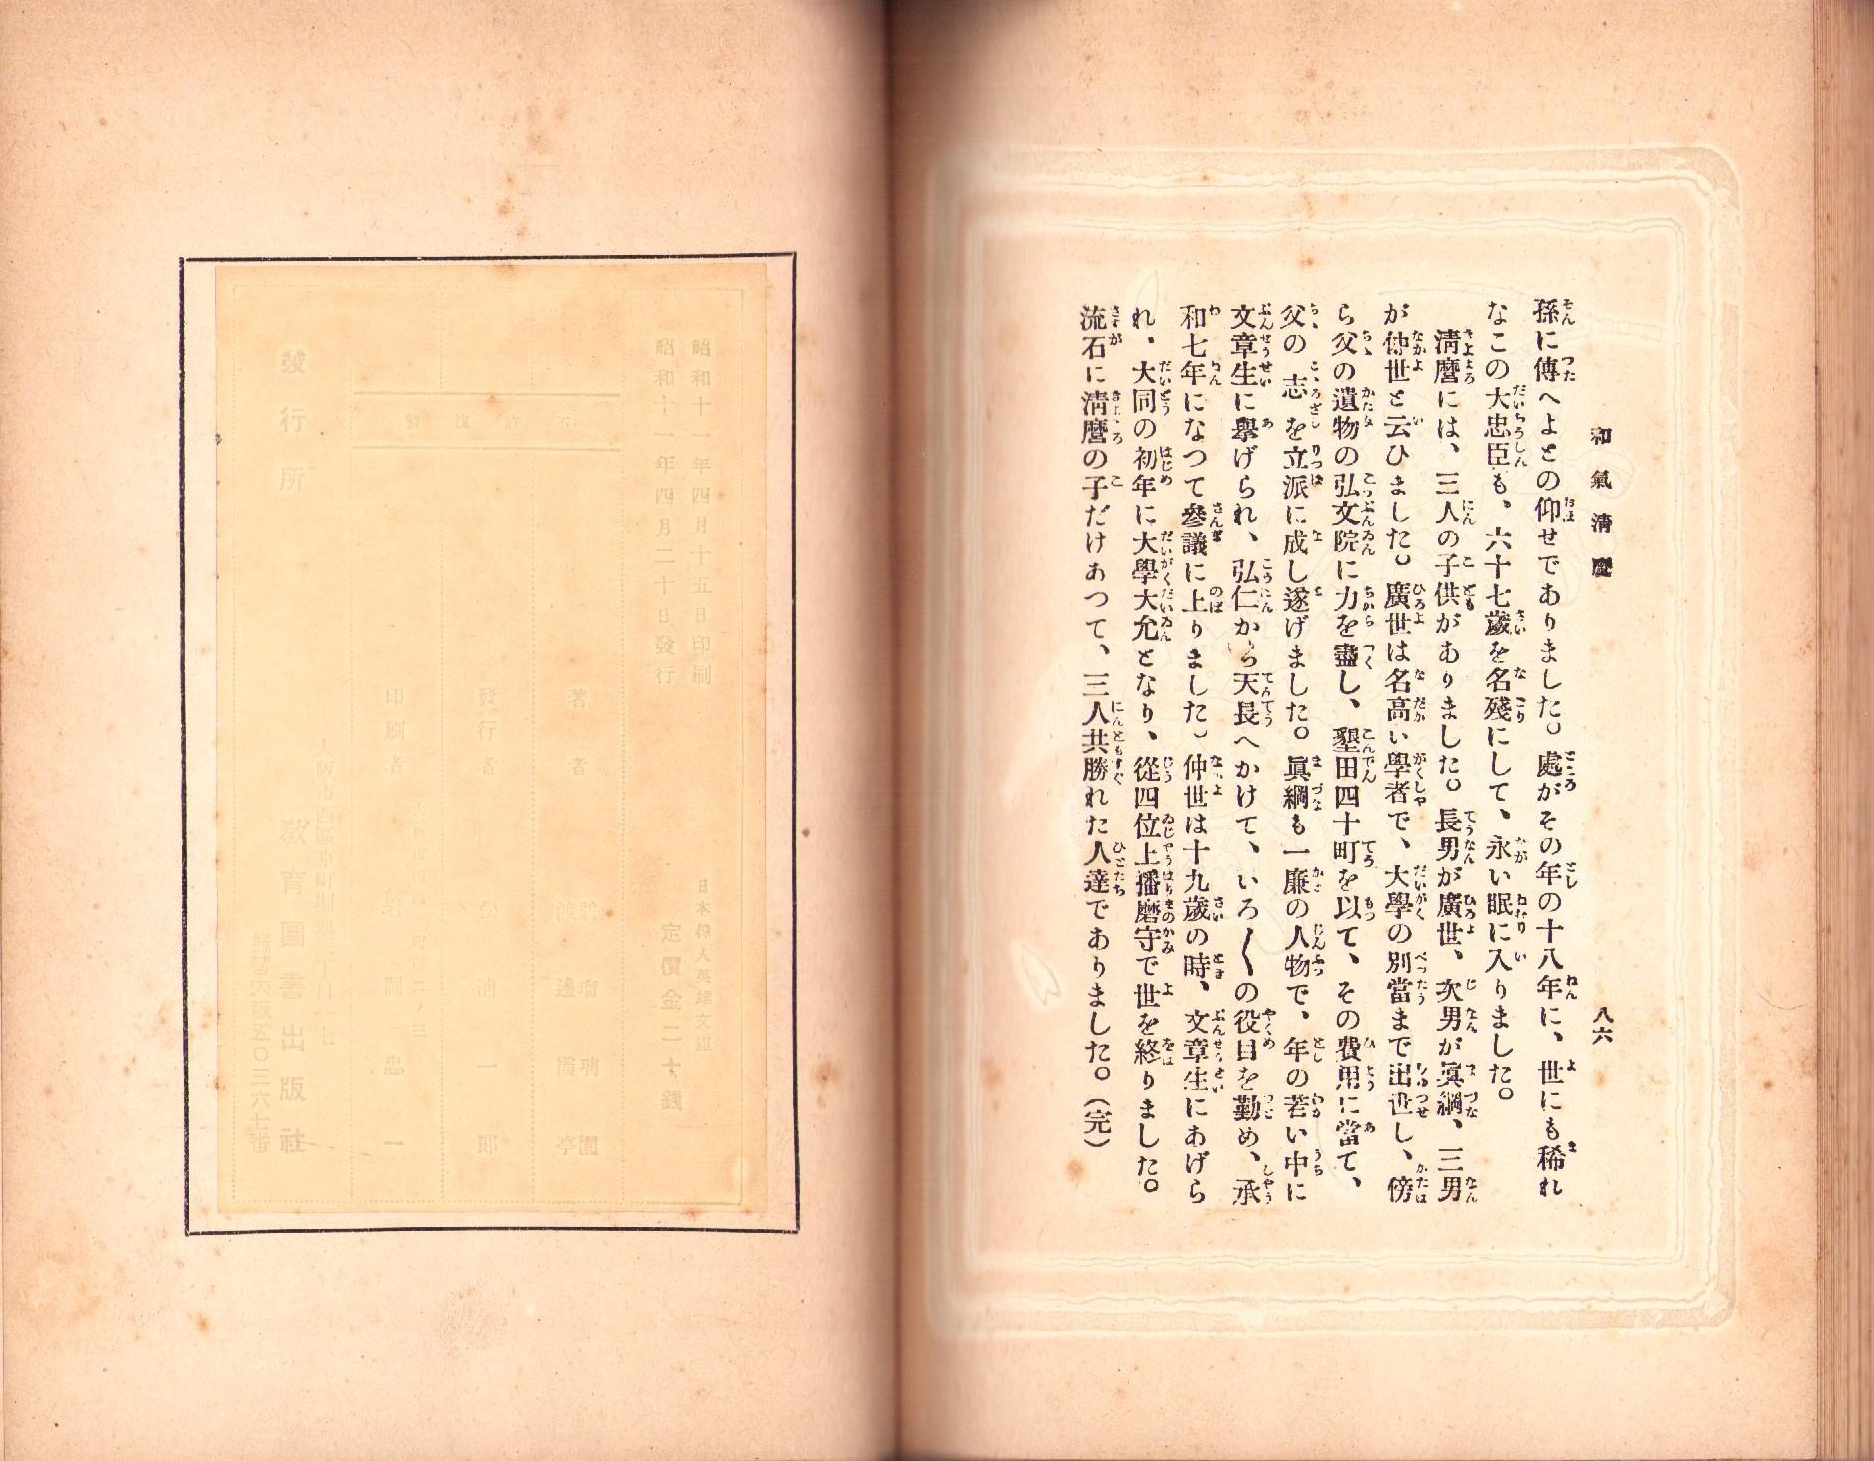 和氣清麿
八六
孫に傳へよとの仰せでありました。處がその年の十八年に、世にも稀れ
なこの大忠臣も、六十七歲を名殘にして、永い眠に入りました。
清麿には、三人の子供がありました。長男が廣世、次男が眞綱、三男
が仲世と云ひました。廣世は名高い學者で、大學の別當まで出世し、傍
ら父の遺物の弘文院に力を盡し、墾田四十町を以て、その費用に當て、
父の志を立派に成し遂げました。眞綱も一廉の人物で、年の若い中に
文章生に擧げられ、弘仁から天長へかけて、いろ〱の役目を勤め、承
和七年になつて參議に上りました。仲世は十九歲の時、文章生にあげら
れ、大同の初年に大學大允となり、從四位上播磨守で世を終りました。
流石に清麿の子だけあつて、三人共勝れた人達でありました。（完）
昭和十一年四月十五日印刷
昭和十一年四月二十日發行
日本偉人英雄文庫
定價金二十錢
著者
發行者
印刷者
發行所
教育圖書出版社